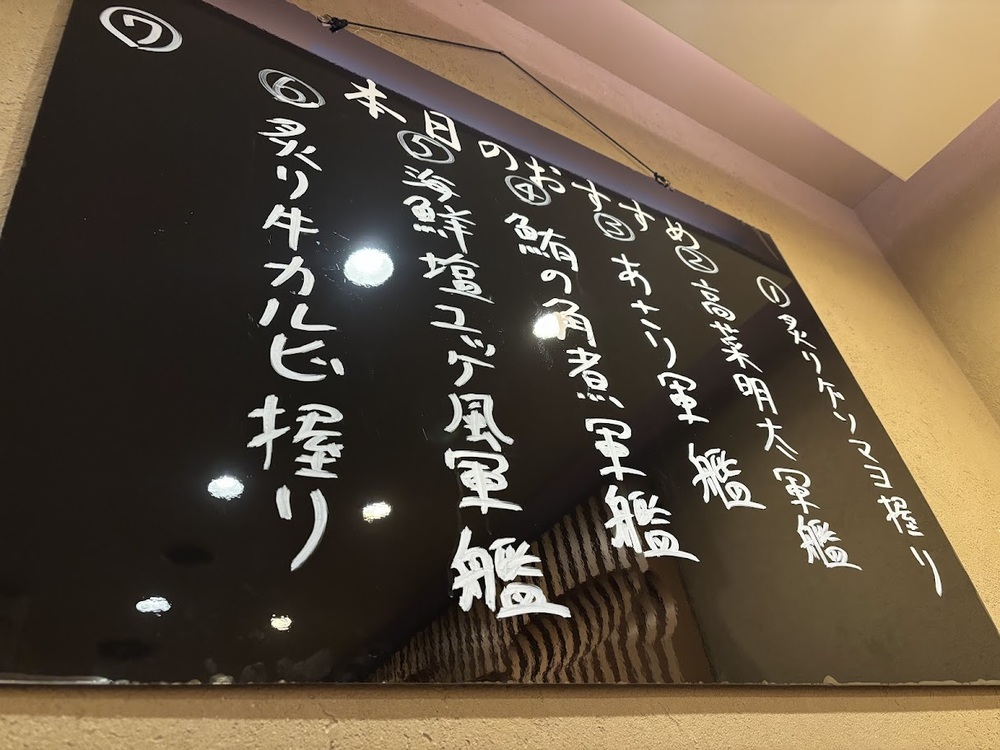 本日のおすすめ
① 炙りゲソマヨ握り
② 高菜明太軍艦
③ あさり軍艦
④ 鮪の角煮軍艦
⑤ 海鮮塩ユッケ風軍艦
⑥ 炙り牛カルビ握り
⑦